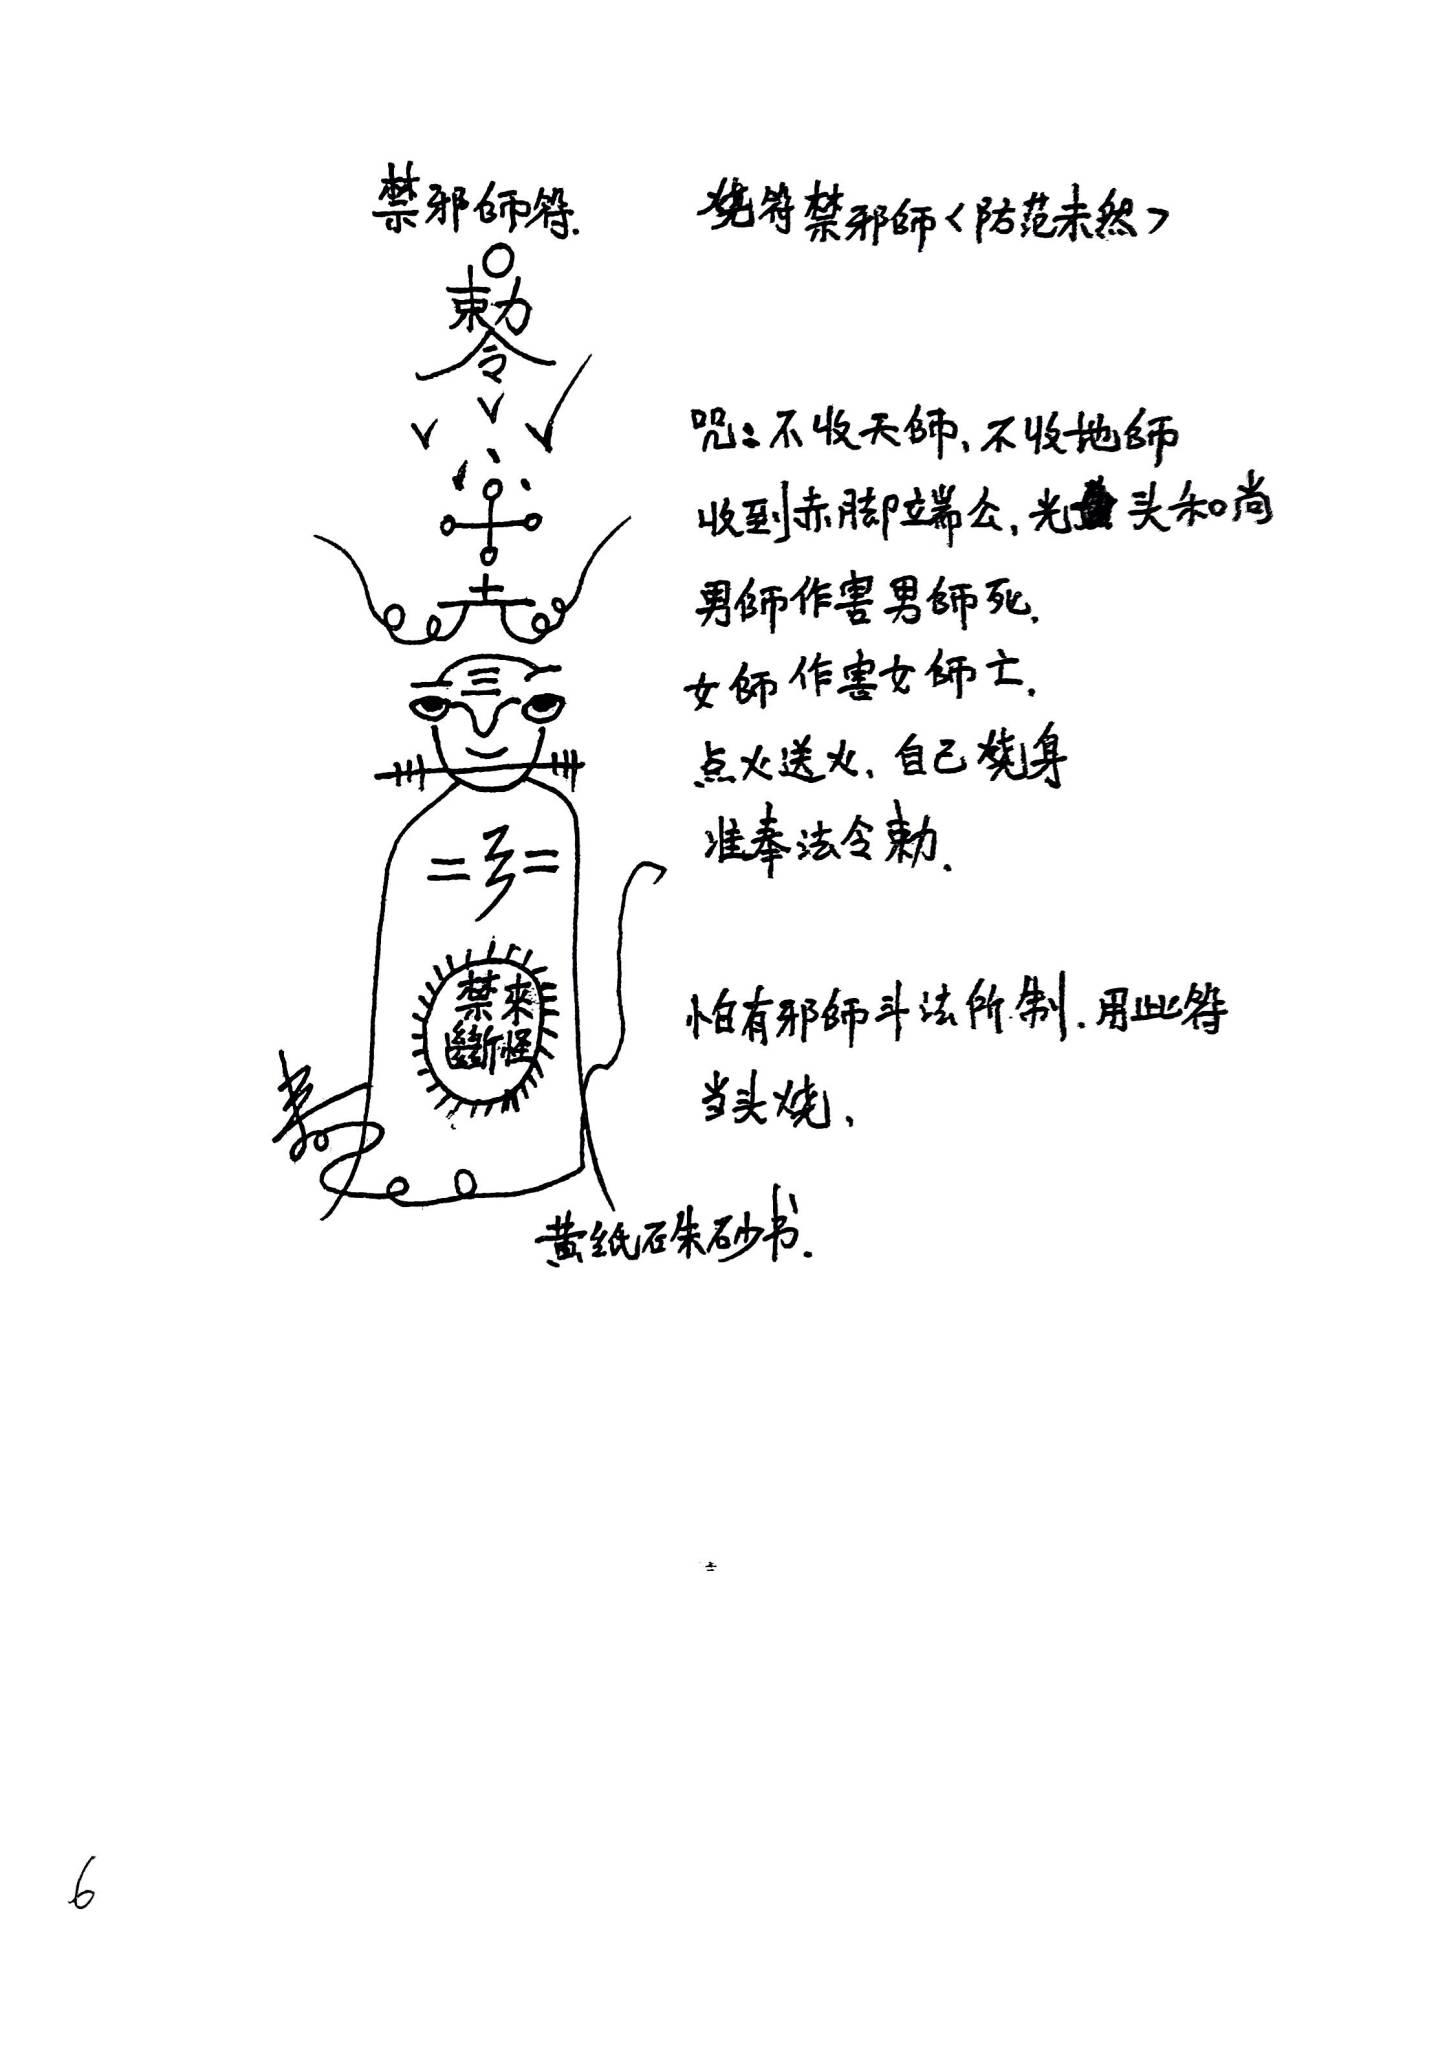 禁邪師符.
烧符禁邪師<防范未然>
勅
令
咒:不收天師、不收地師
收到赤脚端公,光头和尚
男師作害男師死.
女師作害女師亡.
点火送火、自己烧身
准奉法令勅.
禁來
斷怪
怕有邪師斗法所制.用此符
当头烧,
黄纸石朱砂书.
6